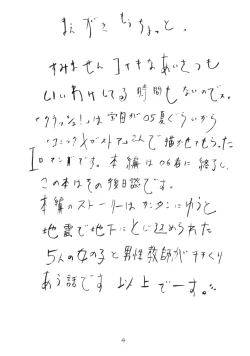 まえがきもうちょっと。
すみません コイキなあいさつも
いいわけしてる時間もないのでス。
「クラッシュ!」は宝島が05夏ぐらいから
コミックメガストアさんで描かせてもらった
エロマンガです。本編は06春に終了し、
この本はその後日談です。
本編のストーリーはカンタンにゆうと
地震で地下にとじ込められた
5人の女の子と男性教師がチチくり
あう話です 以上でーす。
4